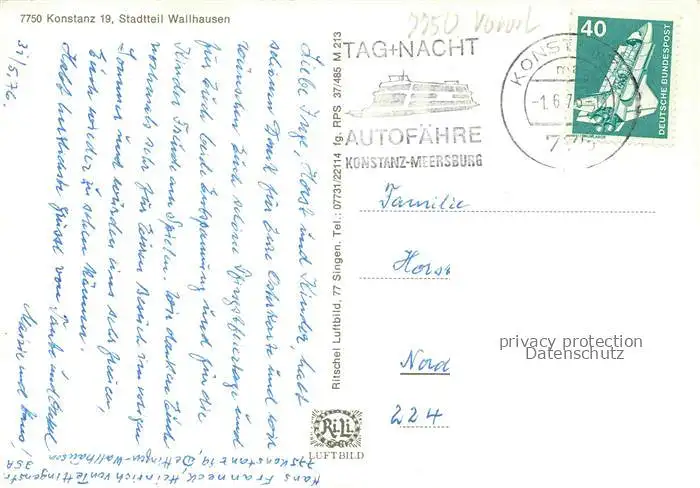 7750 Konstanz 19, Stadtteil Wallhausen
31/5.76
Liebe Inge, Horst und Kinder, habt
schönen Dank für Eure Osterkarte und wir
wünschen Euch schöne Pfingstfeiertage und
für Euch beide Entspannung und für die
Kinder Freude am Spielen. Wir danken Euch
nochmals sehr für Euren Besuch im vorigen
Sommer und würden uns sehr freuen,
Euch wieder zu sehen können.
Habt herzlichste Grüsse von Tante und Onkel
Marie und Hans!
Hans Franneck, Heinrich von Tettingenstr. 35A
775 Konstanz 19, Dettingen-Wallhausen
Ritschel Luftbild, 77 Singen. Tel.: 07731/22114 fg. RPS 37/485 M 213
Ri.Li.
LUFTBILD
7750
TAG+NACHT
AUTOFÄHRE
KONSTANZ-MEERSBURG
-1.6.76
775
40
DEUTSCHE BUNDESPOST
Familie
Horst
Nord
224
privacy protection
Datenschutz